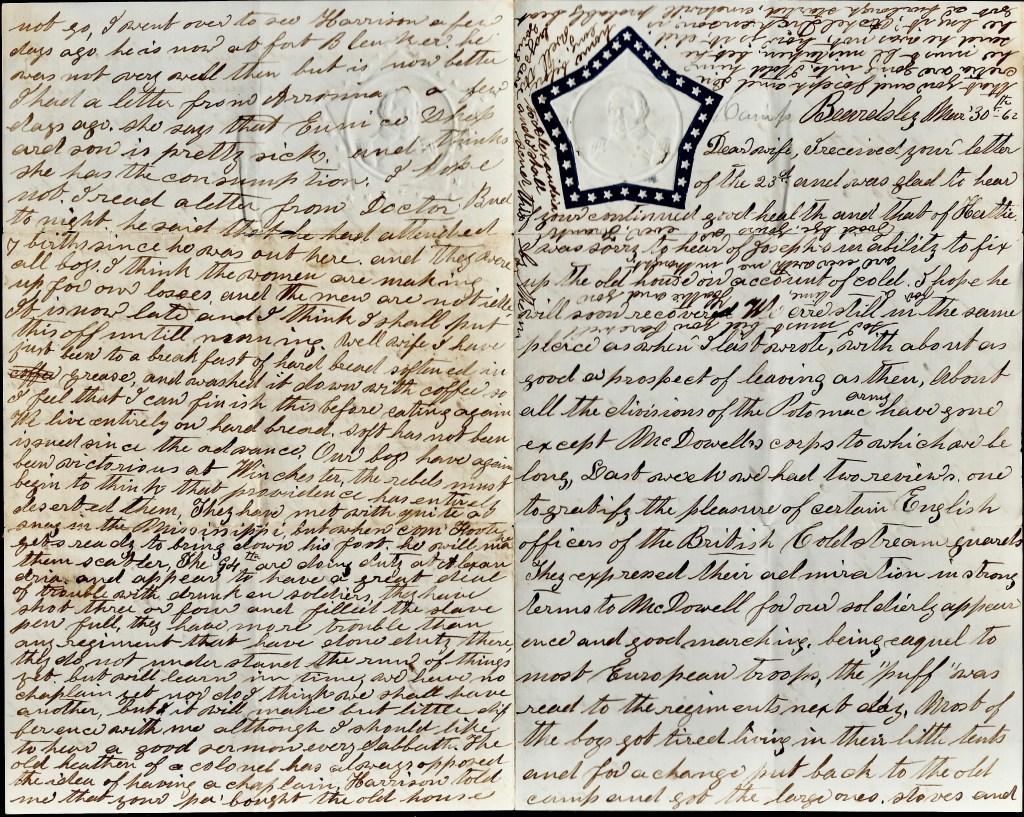 Camp Beardsley Mar 30th 62
Dear wife, I received your letter
of the 23rd and was glad to hear
your continued good health and that of Hattie
I was sorry to hear of Joseph's inability to fix
up the old house on account of cold. I hope he
will soon recover. We are still in the same
pleice as when I last wrote, with about as
good a prospect of leaving as then, About
all the divisions of the Potomac army have gone
except McDowells corps to which we be
long, Last week we had two reviews. one
to gratify the pleasure of certain English
officers of the British Coldstream guards
They expressed their admiration in strong
terms to McDowell for our soldierly appear
ence and good marching, being eaquel to
most European troops, the "puff" was
read to the regiments next day, Most of
the boys got tired living in their little tents
and for a change put back to the old
camp and got the large ones. stoves and
not go, I went over to see Harrison a few
days ago. he is now at fort Blenker. he
was not very well then but is now better
I had a letter from a few
days ago. she says that Eunice
and son is pretty sick. and thinks
she has the consumption. I hope
not. I read a letter from Doctor
to night. he said that he had attended
7 births since he was out here and they were
all boys. I think the women are making
up for our losses, and the men are not idle
It is now late and I think I shall put
this off untill morning. Well wife I have
just been to a breakfast of hard bread softened in
grease, and washed it down with coffee so
I feel that I can finish this before eating again
We live entirely on hard bread. soft has not been
issued since the advance. Our boys have again
been victorious at Winchester, the rebels must
begin to think that providence has entirely
deserted them, They have met with quite a
snag in the Mississippi, but when com Foote
gets ready to bring down his foot he will make
them scatter, The 94th are doing duty at Alexan
dria and appear to have a great deal
of trouble with drunken soldiers, they have
shot three or four and filled the slave
pen full, they have more trouble than
any regiment that have done duty there
they do not understand the run of things
yet. but will learn in time, we have no
chaplain yet nor do I think we shall have
another, But it will make but little dif
ference with me although I should like
to hear a good sermon every Sabbath. The
old heathen of a colonel has always opposed
the idea of having a chaplain, Harrison told
me that your pa bought the old house